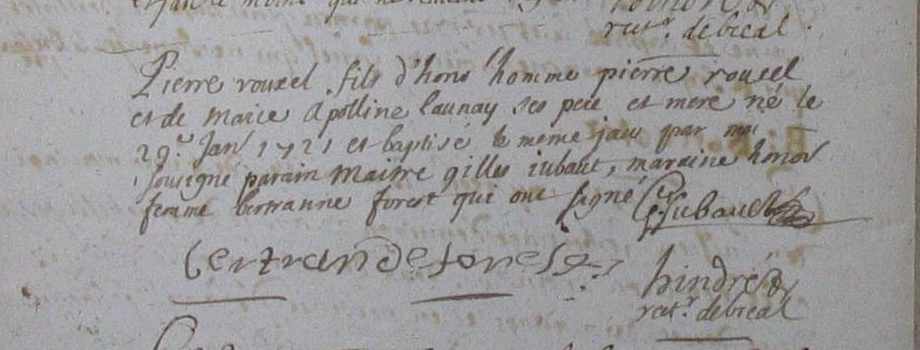 rect.r debreal
Pierre rouxel fils d'hono l'homme pierre rouxel
et de marie Apolline launay ses pere et mere né le
29.e Jan 1721 et baptisé le meme jour par moi
sousigné parain maitre gilles iubaut, maraine honor
femme bertranne forest qui ont signé G. Jubault
bertrande forest
hindré
rect.r debreal